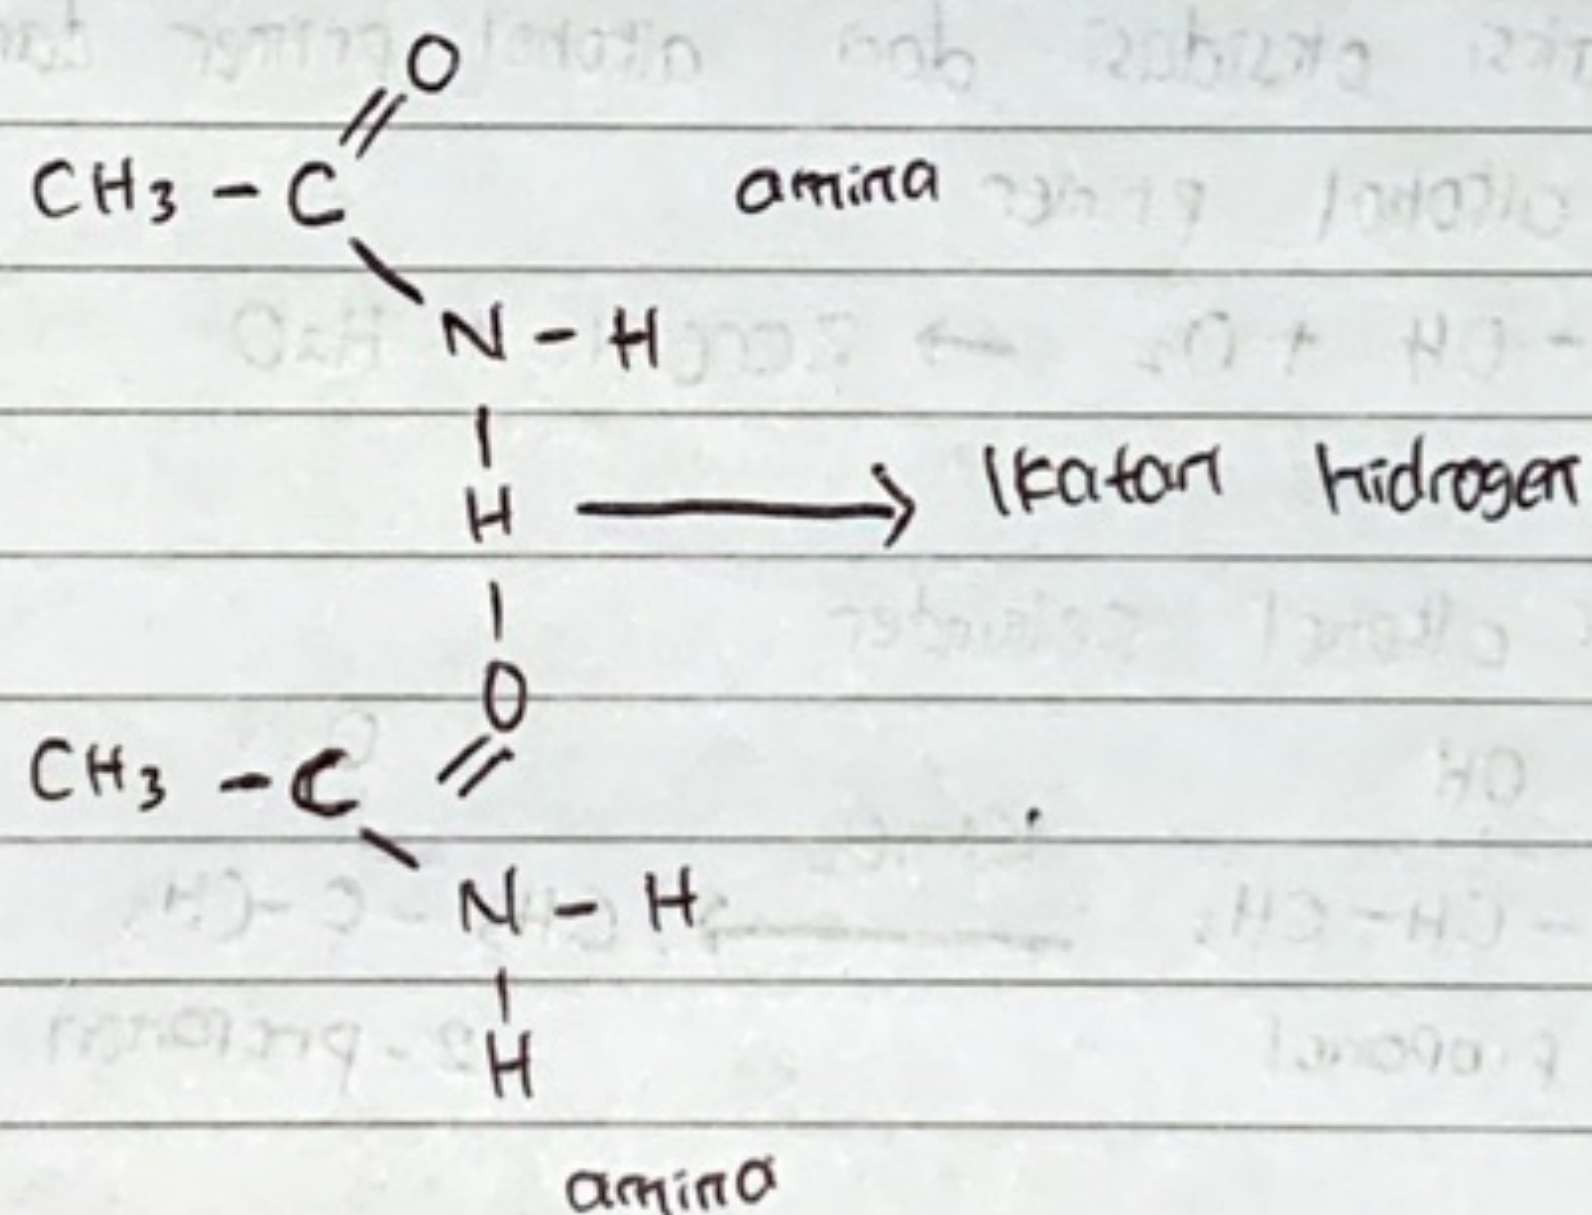 O
CH3 - C amina
N - H
H → Ikatan hidrogen
O
CH3 - C
N - H
H
amina